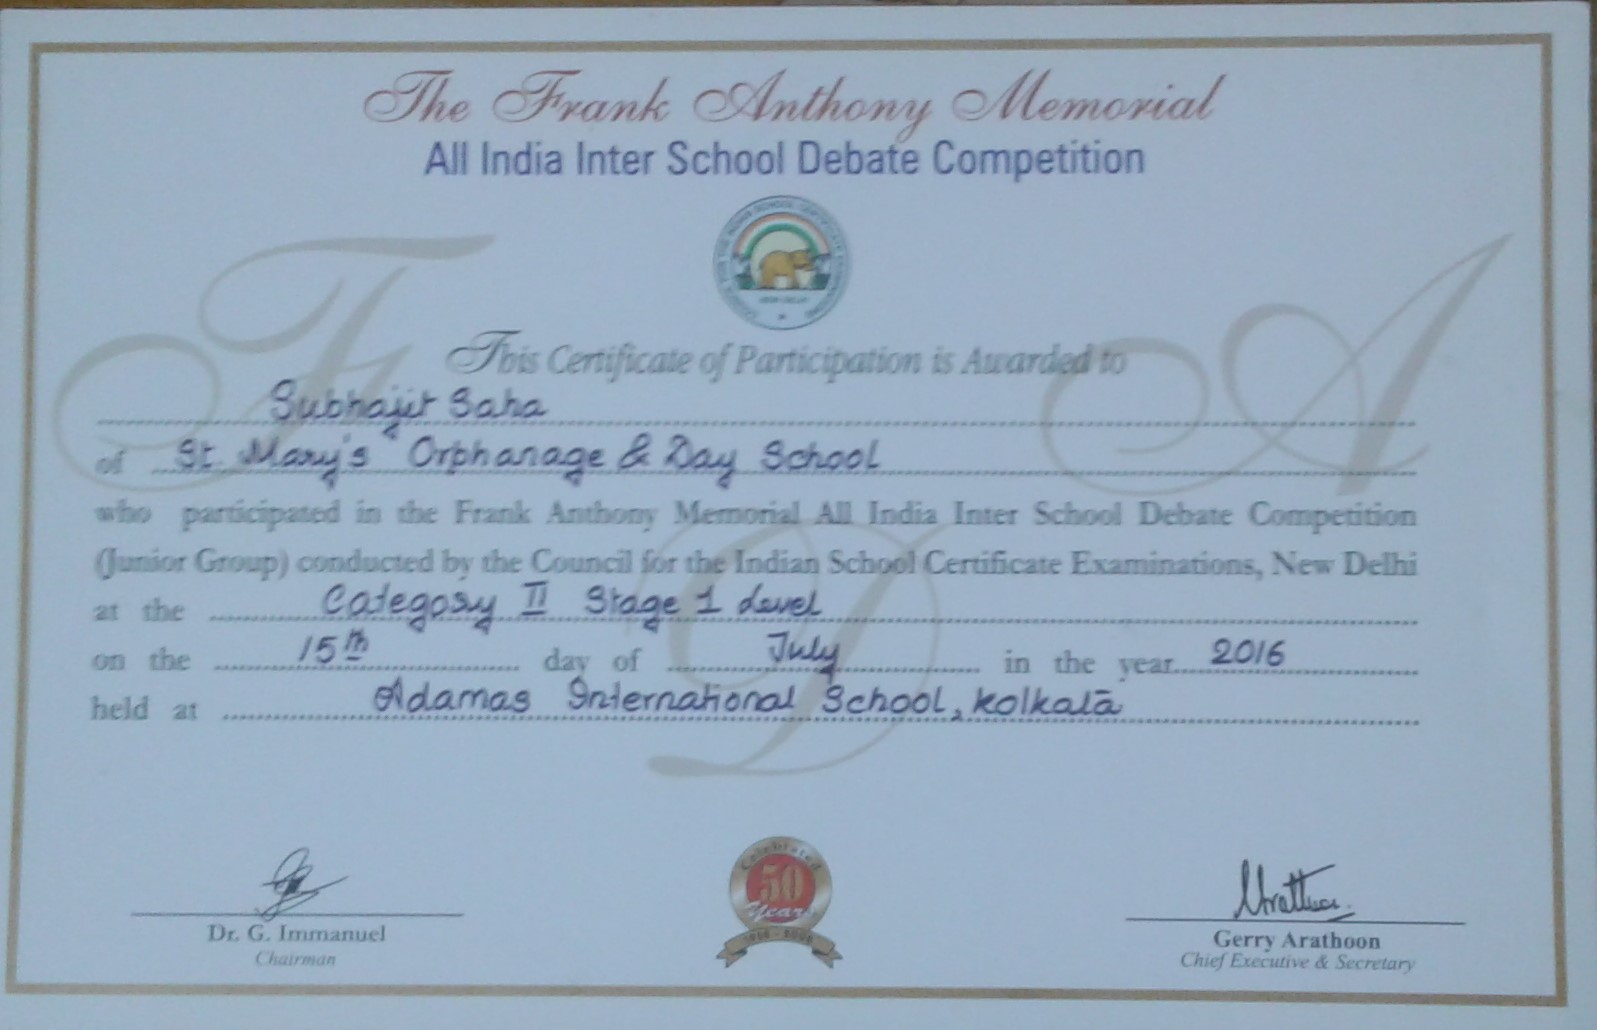 The Frank Anthony Memorial
All India Inter School Debate Competition
NEW DELHI
This Certificate of Participation is Awarded to
Subhajit Saha
of St. Mary's Orphanage & Day School
who participated in the Frank Anthony Memorial All India Inter School Debate Competition
(Junior Group) conducted by the Council for the Indian School Certificate Examinations, New Delhi
at the Category II Stage 1 Level
on the 15th day of July in the year 2016
held at Adamas International School, Kolkata
Celebrated
50
Years
Dr. G. Immanuel
Chairman
Gerry Arathoon
Chief Executive & Secretary